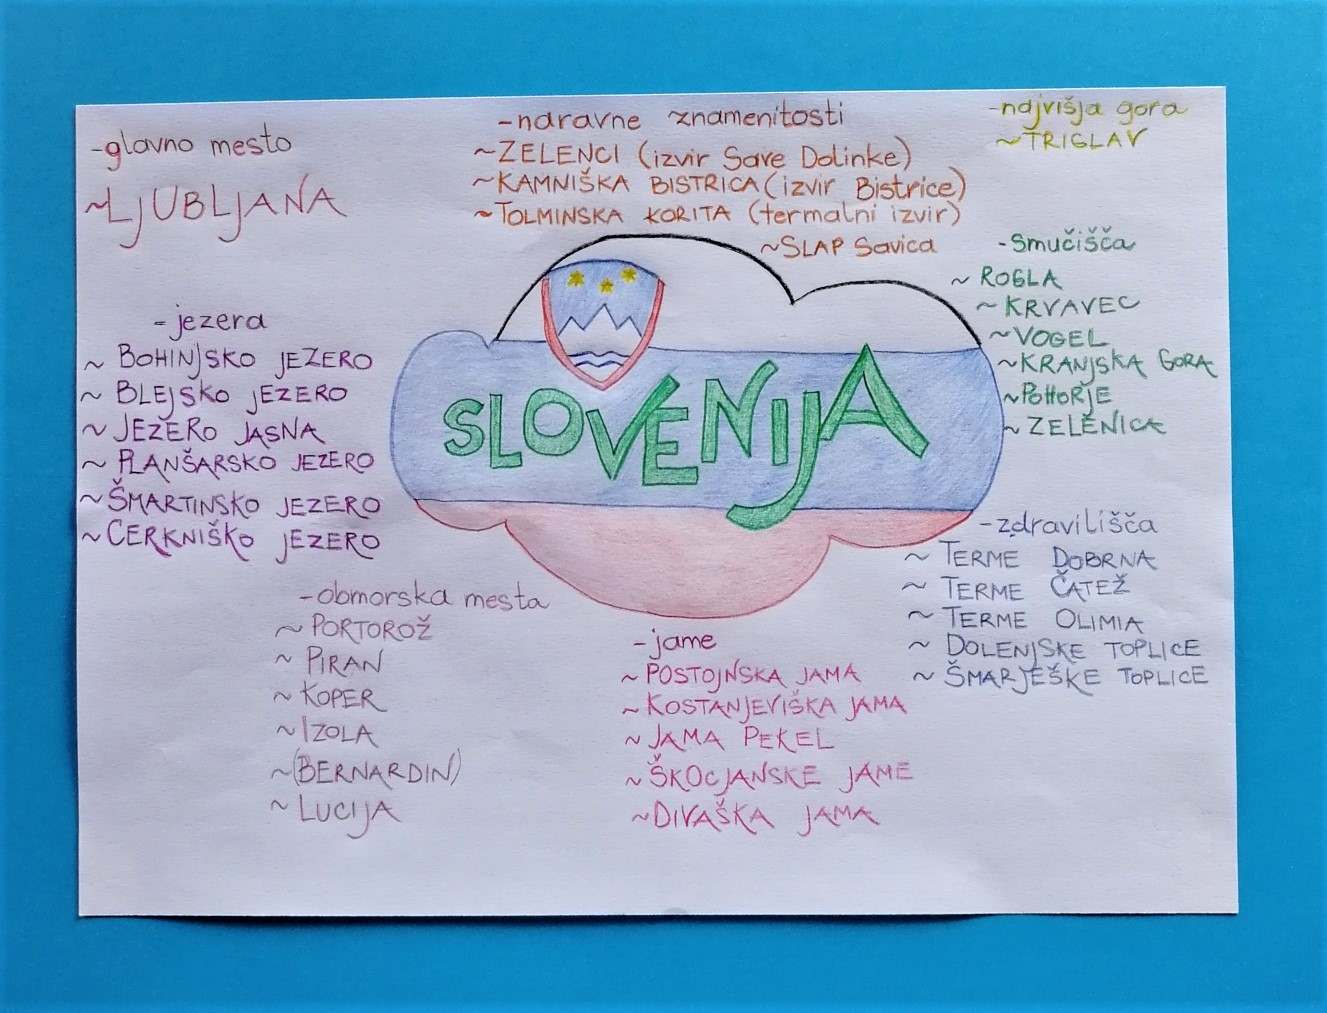 -glavno mesto
~LJUBLJANA
-naravne znamenitosti
~ZELENCI (izvir Save Dolinke)
~KAMNIŠKA BISTRICA (izvir Bistrice)
~TOLMINSKA KORITA (termalni izvir)
~SLAP Savica
-najvišja gora
~TRIGLAV
-smučišča
~ ROGLA
~ KRVAVEC
~VOGEL
~KRANJSKA GORA
~POHORJE
~ ZELENICA
-jezera
~ BOHINJSKO JEZERO
~ BLEJSKO JEZERO
~ JEZERO JASNA
~ PLANŠARSKO JEZERO
~ŠMARTINSKO JEZERO
~CERKNIŠKO JEZERO
SLOVENIJA
-zdravilišča
~ TERME DOBRNA
~ TERME ČATEŽ
~ TERME OLIMIA
~ DOLENJSKE TOPLICE
~ ŠMARJEŠKE TOPLICE
-obmorska mesta
~ PORTOROŽ
~ PIRAN
~KOPER
~IZOLA
~(BERNARDIN)
~ LUCIJA
-jame
~POSTOJNSKA JAMA
~KOSTANJEVIŠKA JAMA
~JAMA PEKEL
~ŠKOCJANSKE JAME
~DIVAŠKA JAMA